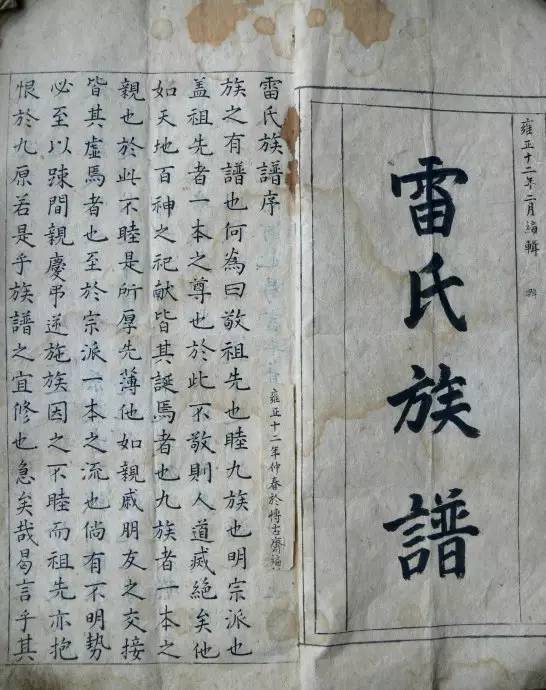 雍正十二年二月编辑
雷氏族譜
雷氏族譜序
雍正十二年仲春於博古齋编
族之有譜也何為曰敬祖先也睦九族也明宗派也
蓋祖先者一本之尊也於此不敬則人道滅絕矣他
如天地百神之祀献皆其誕焉者也九族者一本之
親也於此不睦是所厚先薄他如親戚朋友之交接
皆其虛焉者也至於宗派一本之流也倘有不明勢
必至以踈間親慶弔遂施族因之不睦而祖先亦抱
恨於九原若是乎族譜之宜修也急矣哉曷言乎其